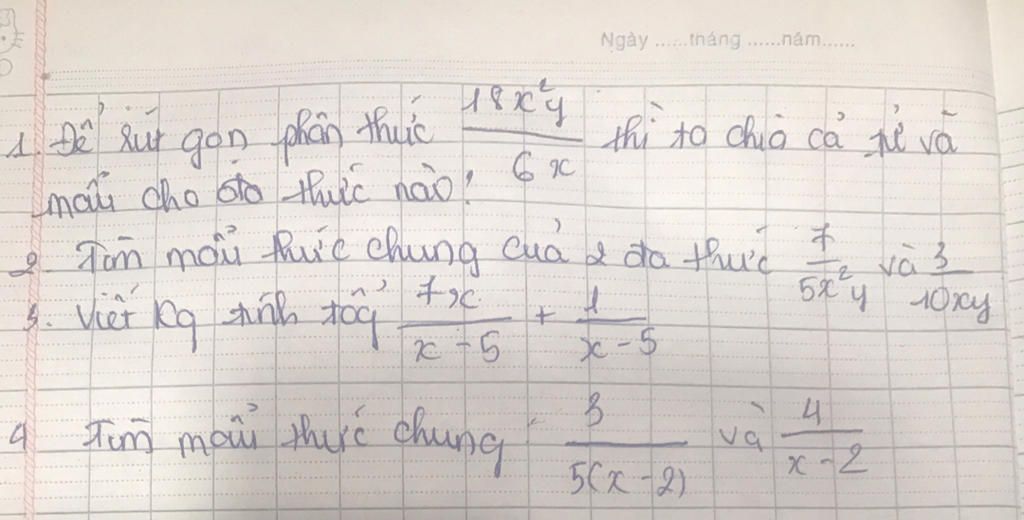 Ngày ......tháng ......năm......
1. Để rút gọn phân thức \frac{18x^2y}{6x} thì ta chia cả tử và
mẫu cho đa thức nào?
2. Tìm mẫu thức chung của 2 đa thức \frac{7}{5x^2y} và \frac{3}{10xy}
3. Viết Kq tính tổg \frac{7x}{x-5} + \frac{1}{x-5}
4 Tìm mẫu thức chung \frac{3}{5(x-2)} và \frac{4}{x-2}